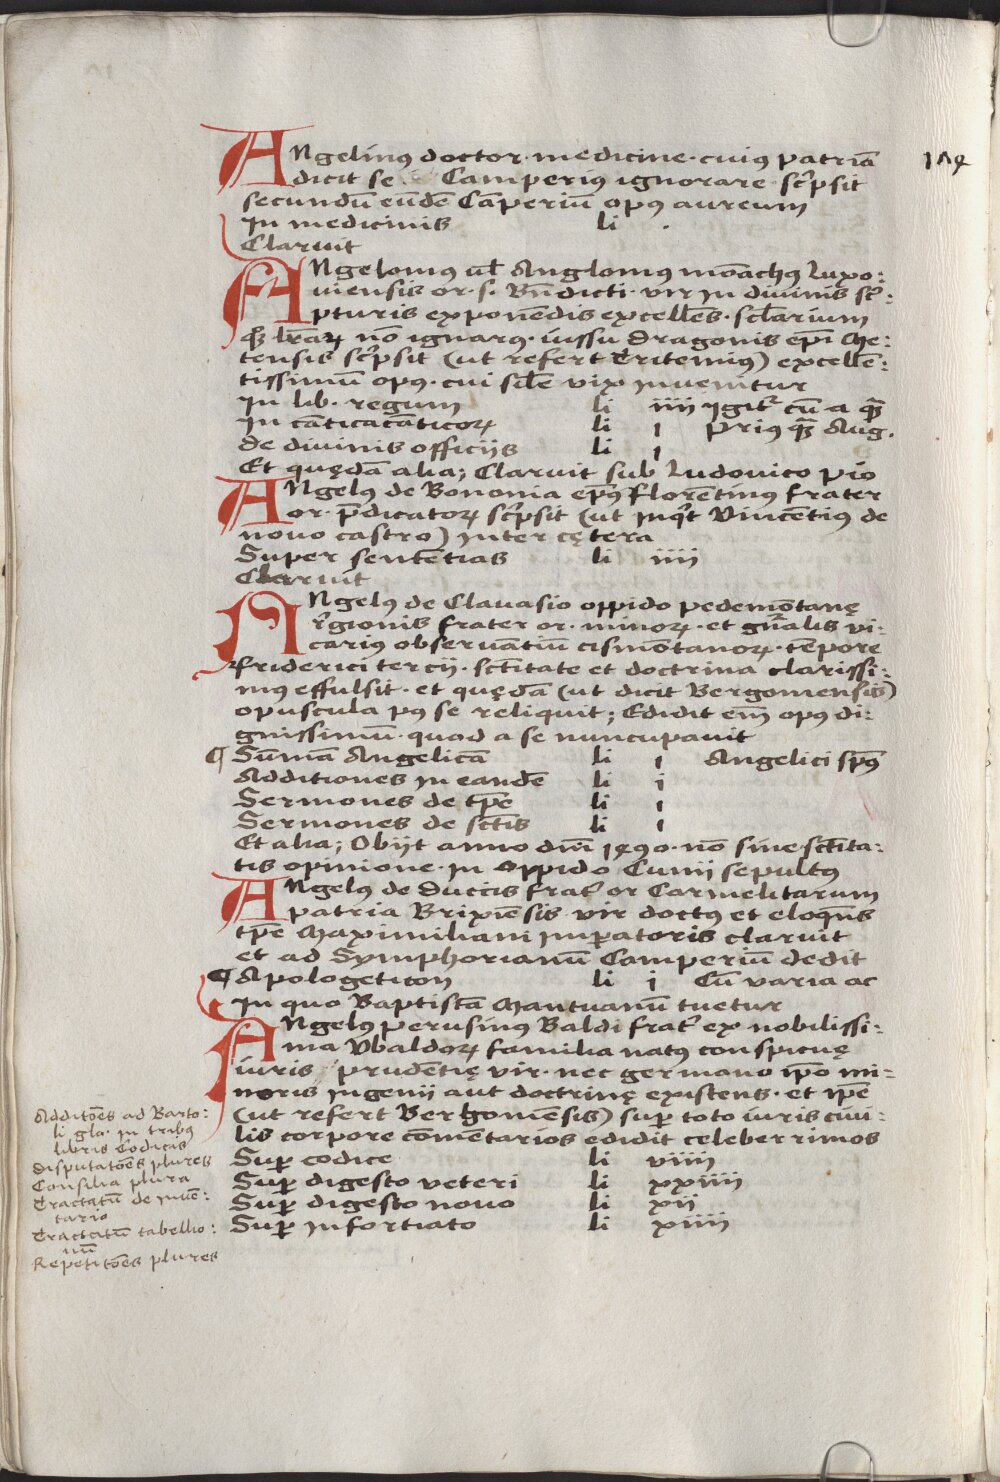 ANgelinꝰ doctor medicine · cuiꝰ patriā
dicit se Camperiꝰ ignorare scͥpsit
secundū eūdē Cāperiū opꝰ aureum
In medicinis li .
Claruit
ANgelomꝰ ul̄ Anglomꝰ mōachꝰ Luxo:
uiensis or· s· Bn̄dicti· vir in divinis scͥ:
pturis exponēdis excellēs · scl̄arium
qͦꝫ lr̄aꝝ nō ignarꝰ · iussu dragonis ep̄i Me:
tensis scͥpsit (ut refert Tritemiꝰ) excellē:
tissimū opꝰ · cui sil̄e vix invenitur
In lib· regum li iiii Igitᷣ cū a qͣꝫ
In cātica cāticoꝝ li i priꝰ qͣꝫ Aug.
de divinis officiis li i
Et quędā alia; Claruit sub Ludovico pio
ANgelꝰ de Bononia ep̄ꝰ florētinꝰ frater
or· p̄dicatoꝝ scͥpsit (ut inqͥt Vincētiꝰ de
novo castro) inter cętera
Super sentētias li iiii
Claruit
ANgelꝰ de Clavasio oppido pedemōtanę
rͤgionis frater or· minoꝝ · et gn̄alis vi:
carius observātiū cismōtanoꝝ · tēpore
friderici tercii · sctītate et doctrina clarissi:
mꝰ effulsit · et quędā (ut dicit Bergomensis)
opuscula pꝰ se reliquit; Edidit em̄ opꝰ di:
gnissimū · quod a se nuncupavit
¶ Sūmā Angelicā li i Angelici spūs
Additiones in eandē li i
Sermones de tp̄e li i
Sermones de sctīs li i
Et alia; Obiit anno dn̄i 1490 · nō sine sctīta:
tis opinione · in Oppido Cunii sepultꝰ
ANgelꝰ de Duccis fratͤ or Carmelitarum
patria Brixiēsis vir doctꝰ et eloquēs
tp̄e Maximiliani imꝑatoris claruit
et ad Symphorianū Camperiū dedit
¶ Apologeticon li i Cū varia ac
In quo Baptistā Mantuanū tuetur
ANgelꝰ perusinꝰ Baldi fratͤ ex nobilissi:
ma Vbaldoꝝ familia natꝰ conspicuę
iuris prudētię vir · nec germano ip̄o mi:
noris ingenii aut doctrinę existens · et ip̄e
(ut refert Bergomēsis) suꝑ toto iuris civi:
lis corpore cōmētarios edidit celeberrimos
Suꝑ codice li viiii
Suꝑ digesto veteri li xxiiii
Suꝑ digesto novo li xii
Suꝑ infortiato li xiiii
Additōes ad Barto:
li gla· in tribꝰ
libris Codicis
Disputatōes plures
Consilia plura
Tractatū de invē:
tario
Tractatū tabellio:
nū
Repetitōes plures